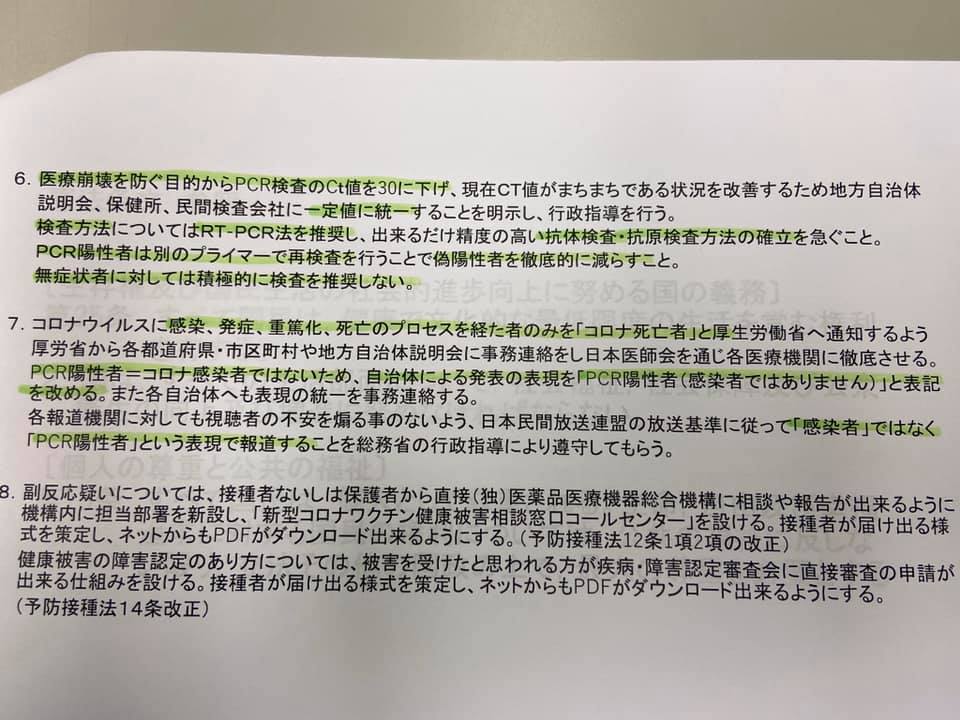 6. 医療崩壊を防ぐ目的からPCR検査のCt値を30に下げ、現在CT値がまちまちである状況を改善するため地方自治体
説明会、保健所、民間検査会社に一定値に統一することを明示し、行政指導を行う。
検査方法についてはRT-PCR法を推奨し、出来るだけ精度の高い抗体検査・抗原検査方法の確立を急ぐこと。
PCR陽性者は別のプライマーで再検査を行うことで偽陽性者を徹底的に減らすこと。
無症状者に対しては積極的に検査を推奨しない。
7. コロナウイルスに感染、発症、重篤化、死亡のプロセスを経た者のみを「コロナ死亡者」と厚生労働省へ通知するよう
厚労省から各都道府県・市区町村や地方自治体説明会に事務連絡をし日本医師会を通じ各医療機関に徹底させる。
PCR陽性者=コロナ感染者ではないため、自治体による発表の表現を「PCR陽性者(感染者ではありません)」と表記
を改める。また各自治体へも表現の統一を事務連絡する。
各報道機関に対しても視聴者の不安を煽る事のないよう、日本民間放送連盟の放送基準に従って「感染者」ではなく
「PCR陽性者」という表現で報道することを総務省の行政指導により遵守してもらう。
〔個人の尊重と公共の福祉〕
8. 副反応疑いについては、接種者ないしは保護者から直接(独)医薬品医療機器総合機構に相談や報告が出来るように
機構内に担当部署を新設し、「新型コロナワクチン健康被害相談窓口コールセンター」を設ける。接種者が届け出る様
式を策定し、ネットからもPDFがダウンロード出来るようにする。(予防接種法12条1項2項の改正)
健康被害の障害認定のあり方については、被害を受けたと思われる方が疾病・障害認定審査会に直接審査の申請が
出来る仕組みを設ける。接種者が届け出る様式を策定し、ネットからもPDFがダウンロード出来るようにする。
(予防接種法14条改正)